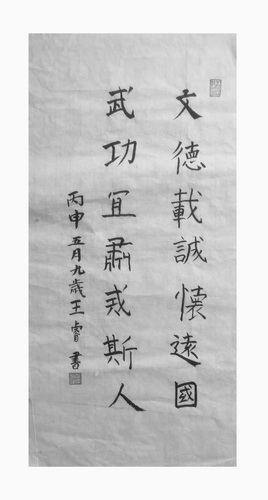 文德載誠懷遠國
武功宜肅戒斯人
丙申五月九歲王睿書